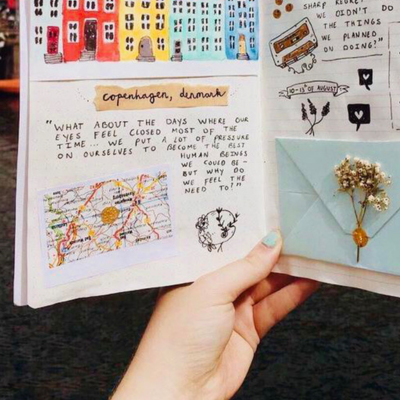 copenhagen, denmark
"WHAT ABOUT THE DAYS WHERE OUR
EYES FEEL CLOSED MOST OF THE
TIME... WE PUT A LOT OF PRESSURE
ON OURSELVES TO BECOME THE BEST
HUMAN BEINGS
WE COULD BE -
BUT WHY DO
WE FEEL THE
NEED TO?"
SHARP
WE DIDN'T DO
THE THINGS
WE PLANNED
ON DOING!"
10-13th OF AUGUST